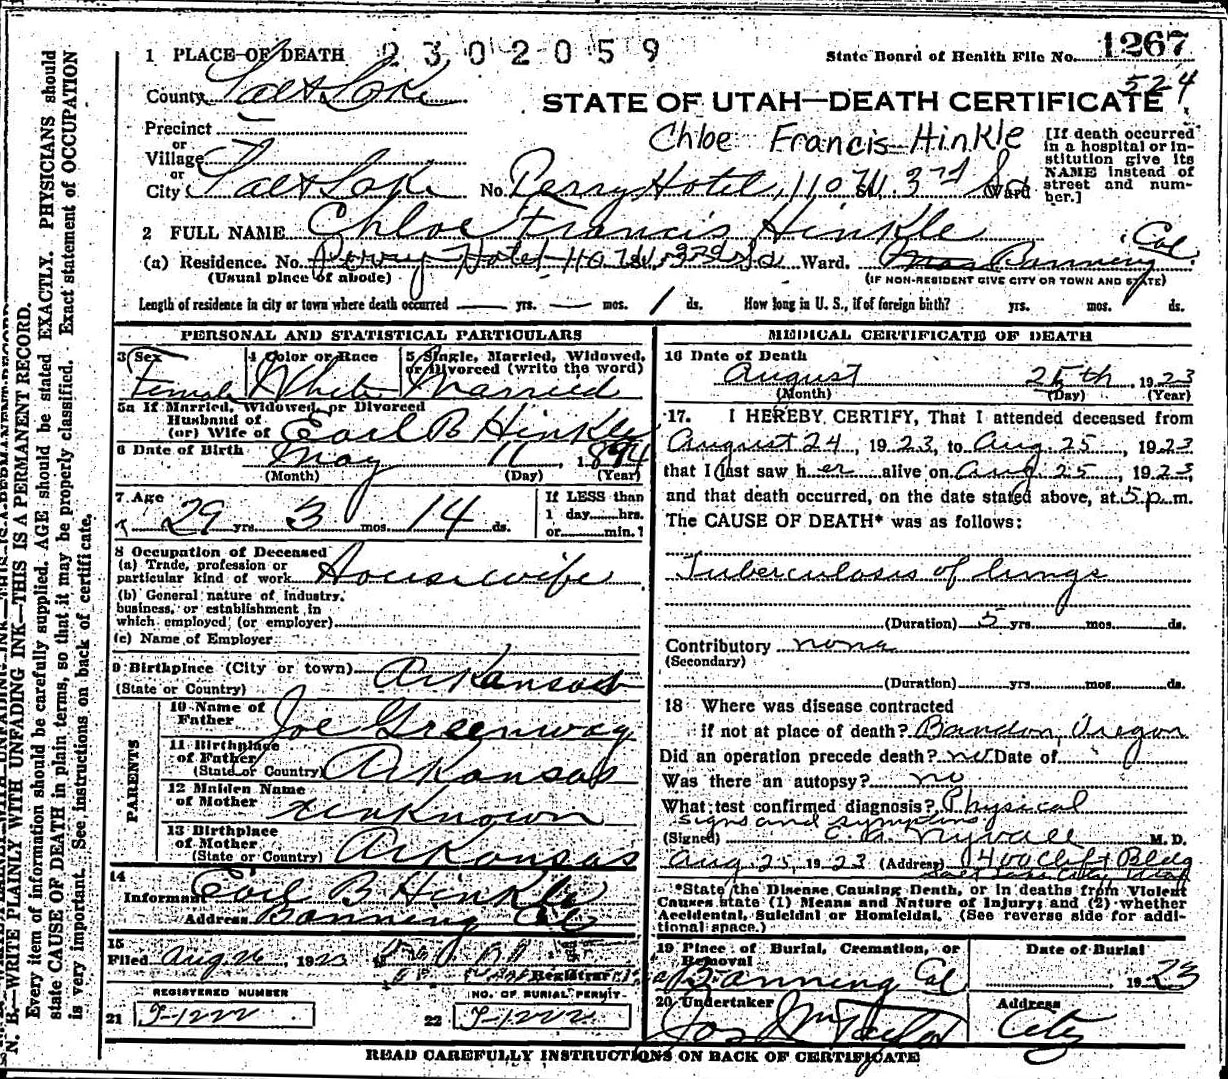 1 PLACE OF DEATH 2302059 State Board of Health File No. 1267
County Salt Lake 524
STATE OF UTAH—DEATH CERTIFICATE
Precinct
or
Village
or
City Salt Lake No. Perry Hotel, 110 W. 3rd So St. Ward
Chloe Francis Hinkle
[If death occurred in a hospital or institution give its NAME instead of street and number.]
2 FULL NAME Chloe Francis Hinkle
(a) Residence. No. Perry Hotel 110 W. 3rd So Ward. Banning Cal.
(Usual place of abode) (IF NON-RESIDENT GIVE CITY OR TOWN AND STATE)
Length of residence in city or town where death occurred — yrs. — mos. 1 ds. How long in U. S., if of foreign birth? yrs. mos. ds.
PERSONAL AND STATISTICAL PARTICULARS
3 Sex 4 Color or Race 5 Single, Married, Widowed, or Divorced (write the word)
Female White Married
5a If Married, Widowed, or Divorced
Husband of
(or) Wife of Earl B Hinkle
6 Date of Birth May 11, 1894
(Month) (Day) (Year)
7 Age 29 yrs. 3 mos. 14 ds.
If LESS than
1 day hrs.
or min.?
8 Occupation of Deceased
(a) Trade, profession or
particular kind of work Housewife
(b) General nature of industry,
business, or establishment in
which employed (or employer)
(c) Name of Employer
9 Birthplace (City or town) Arkansas
(State or Country)
PARENTS
10 Name of
Father Joe Greenway
11 Birthplace
of Father
(State or Country) Arkansas
12 Maiden Name
of Mother unknown
13 Birthplace
of Mother
(State or Country) Arkansas
14
Informant Earl B Hinkle
Address Banning Cal
15
Filed Aug 26, 1923 Registrar
REGISTERED NUMBER NO. OF BURIAL PERMIT
21 T-1222 22 T-1222
MEDICAL CERTIFICATE OF DEATH
16 Date of Death
August 25th, 1923
(Month) (Day) (Year)
17. I HEREBY CERTIFY, That I attended deceased from
August 24, 1923, to Aug. 25, 1923
that I last saw her alive on Aug 25, 1923,
and that death occurred, on the date stated above, at 5 p.m.
The CAUSE OF DEATH* was as follows:
Tuberculosis of lungs
(Duration) 5 yrs. mos. ds.
Contributory none
(Secondary)
(Duration) yrs. mos. ds.
18 Where was disease contracted
if not at place of death? Bandon, Oregon
Did an operation precede death? no Date of
Was there an autopsy? no
What test confirmed diagnosis? Physical
signs and symptoms
(Signed) C. A. Nyvall M. D.
Aug 25, 1923 (Address) 1400 Clift Bldg
Salt Lake City Utah
*State the Disease Causing Death, or in deaths from Violent
Causes state (1) Means and Nature of Injury; and (2) whether
Accidental, Suicidal or Homicidal. (See reverse side for additional space.)
19 Place of Burial, Cremation, or Removal Date of Burial
Banning Cal 1923
20 Undertaker Address
Jos Wm Taylor City
READ CAREFULLY INSTRUCTIONS ON BACK OF CERTIFICATE
N. B.—WRITE PLAINLY WITH UNFADING INK—THIS IS A PERMANENT RECORD.
Every item of information should be carefully supplied. AGE should be stated EXACTLY. PHYSICIANS should
state CAUSE OF DEATH in plain terms, so that it may be properly classified. Exact statement of OCCUPATION
is very important. See instructions on back of certificate.